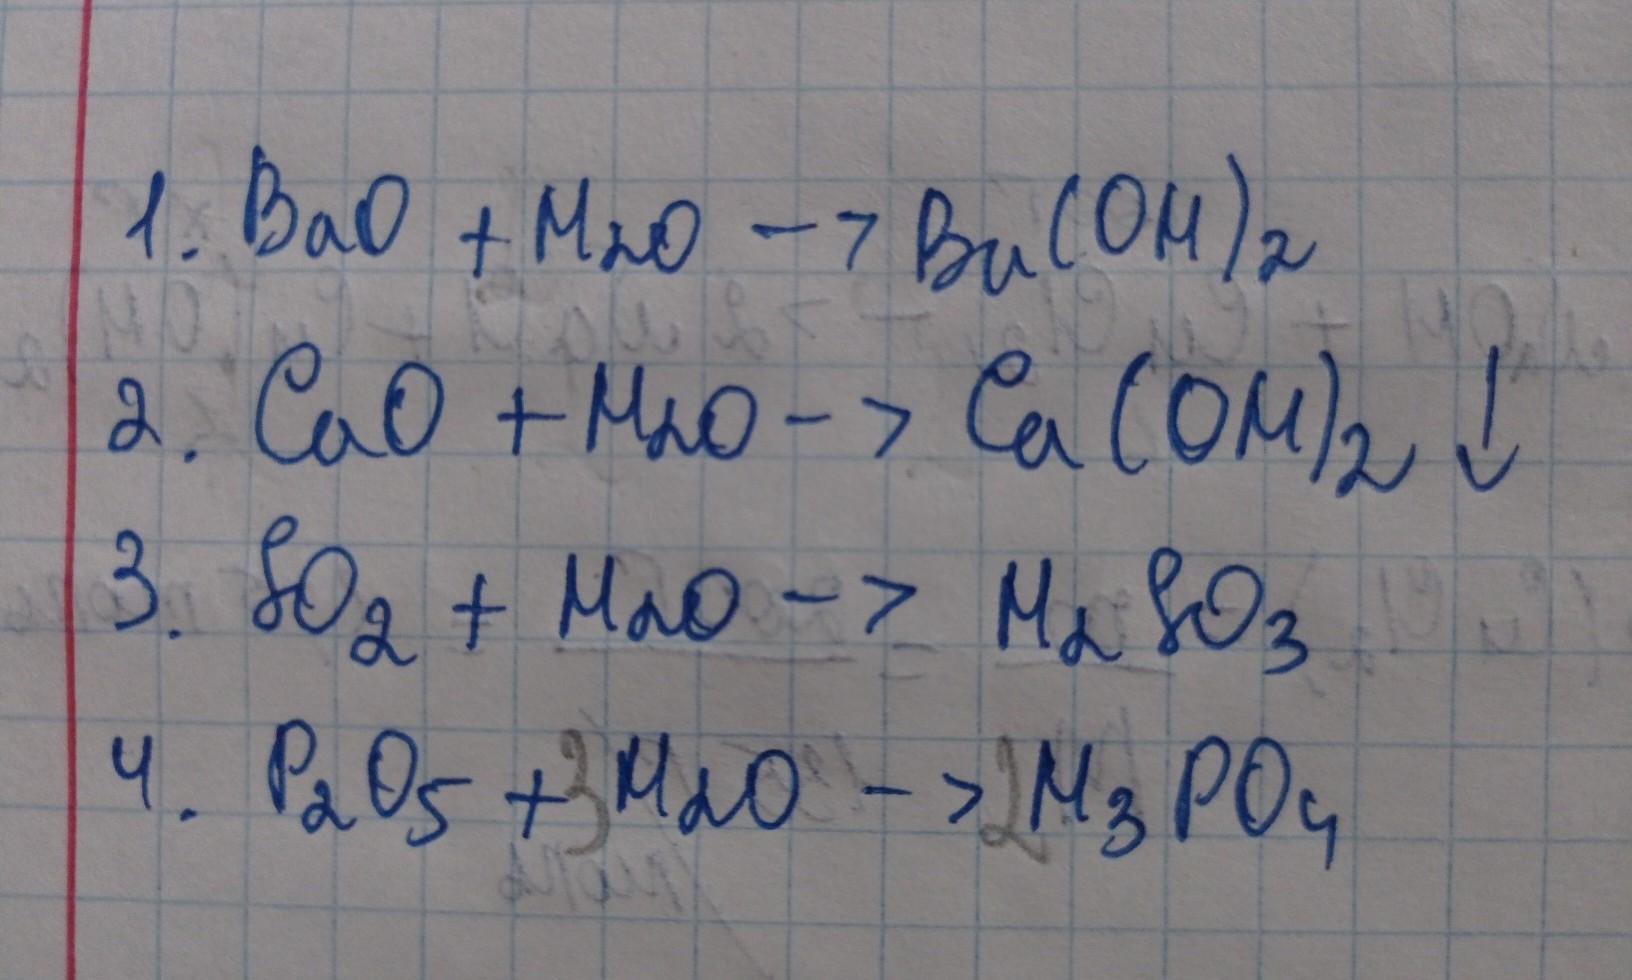 1. BaO + H2O -> Ba(OH)2
2. CaO + H2O -> Ca(OH)2 ↓
3. SO2 + H2O -> H2SO3
4. P2O5 + 3H2O -> 2H3PO4